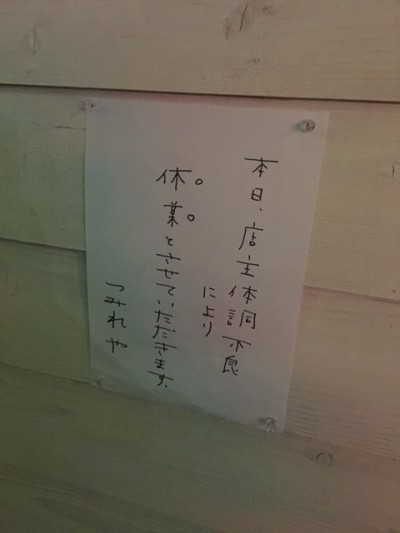 本日、店主体調不良
により
休。業。とさせていただきます、
つみれや